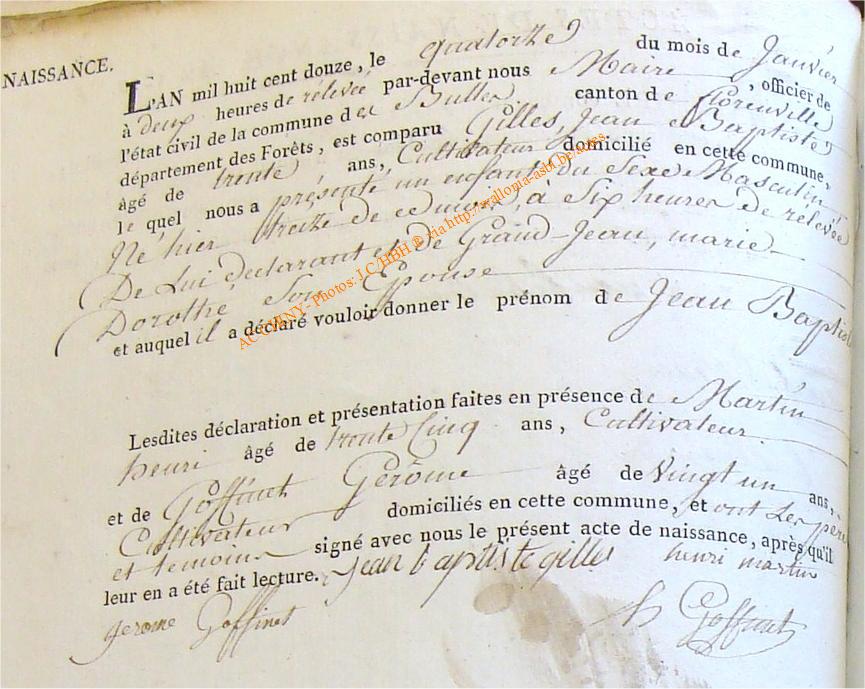 NAISSANCE.
L'AN mil huit cent douze, le quatorze du mois de Janvier
à deux heures de relevée par-devant nous Maire, officier de
l'état civil de la commune de Bulles canton de florenville
département des Forêts, est comparu Gilles, Jean Baptiste
âgé de trente ans, Cultivateur domicilié en cette commune,
le quel nous a présenté un enfant du Sexe Masculin
Né hier treize de ce mois, à Six heures de relevée
De Lui declarant et de Grand-Jean, marie
Dorothé, Son Epouse
et auquel il a déclaré vouloir donner le prénom de Jean Baptist
Lesdites déclaration et présentation faites en présence de Martin
henri âgé de trente Cinq ans, Cultivateur.
et de Goffinet Gérôme âgé de Vingt un ans,
Cultivateur domiciliés en cette commune, et ont Les père
et temoins signé avec nous le présent acte de naissance, après qu'il
leur en a été fait lecture. jean baptiste gilles henri martin
gerome Goffinet h Goffinet
ACCHINY - Photos: J.C/HBH ® via http://wallonia-asbl.be/actes